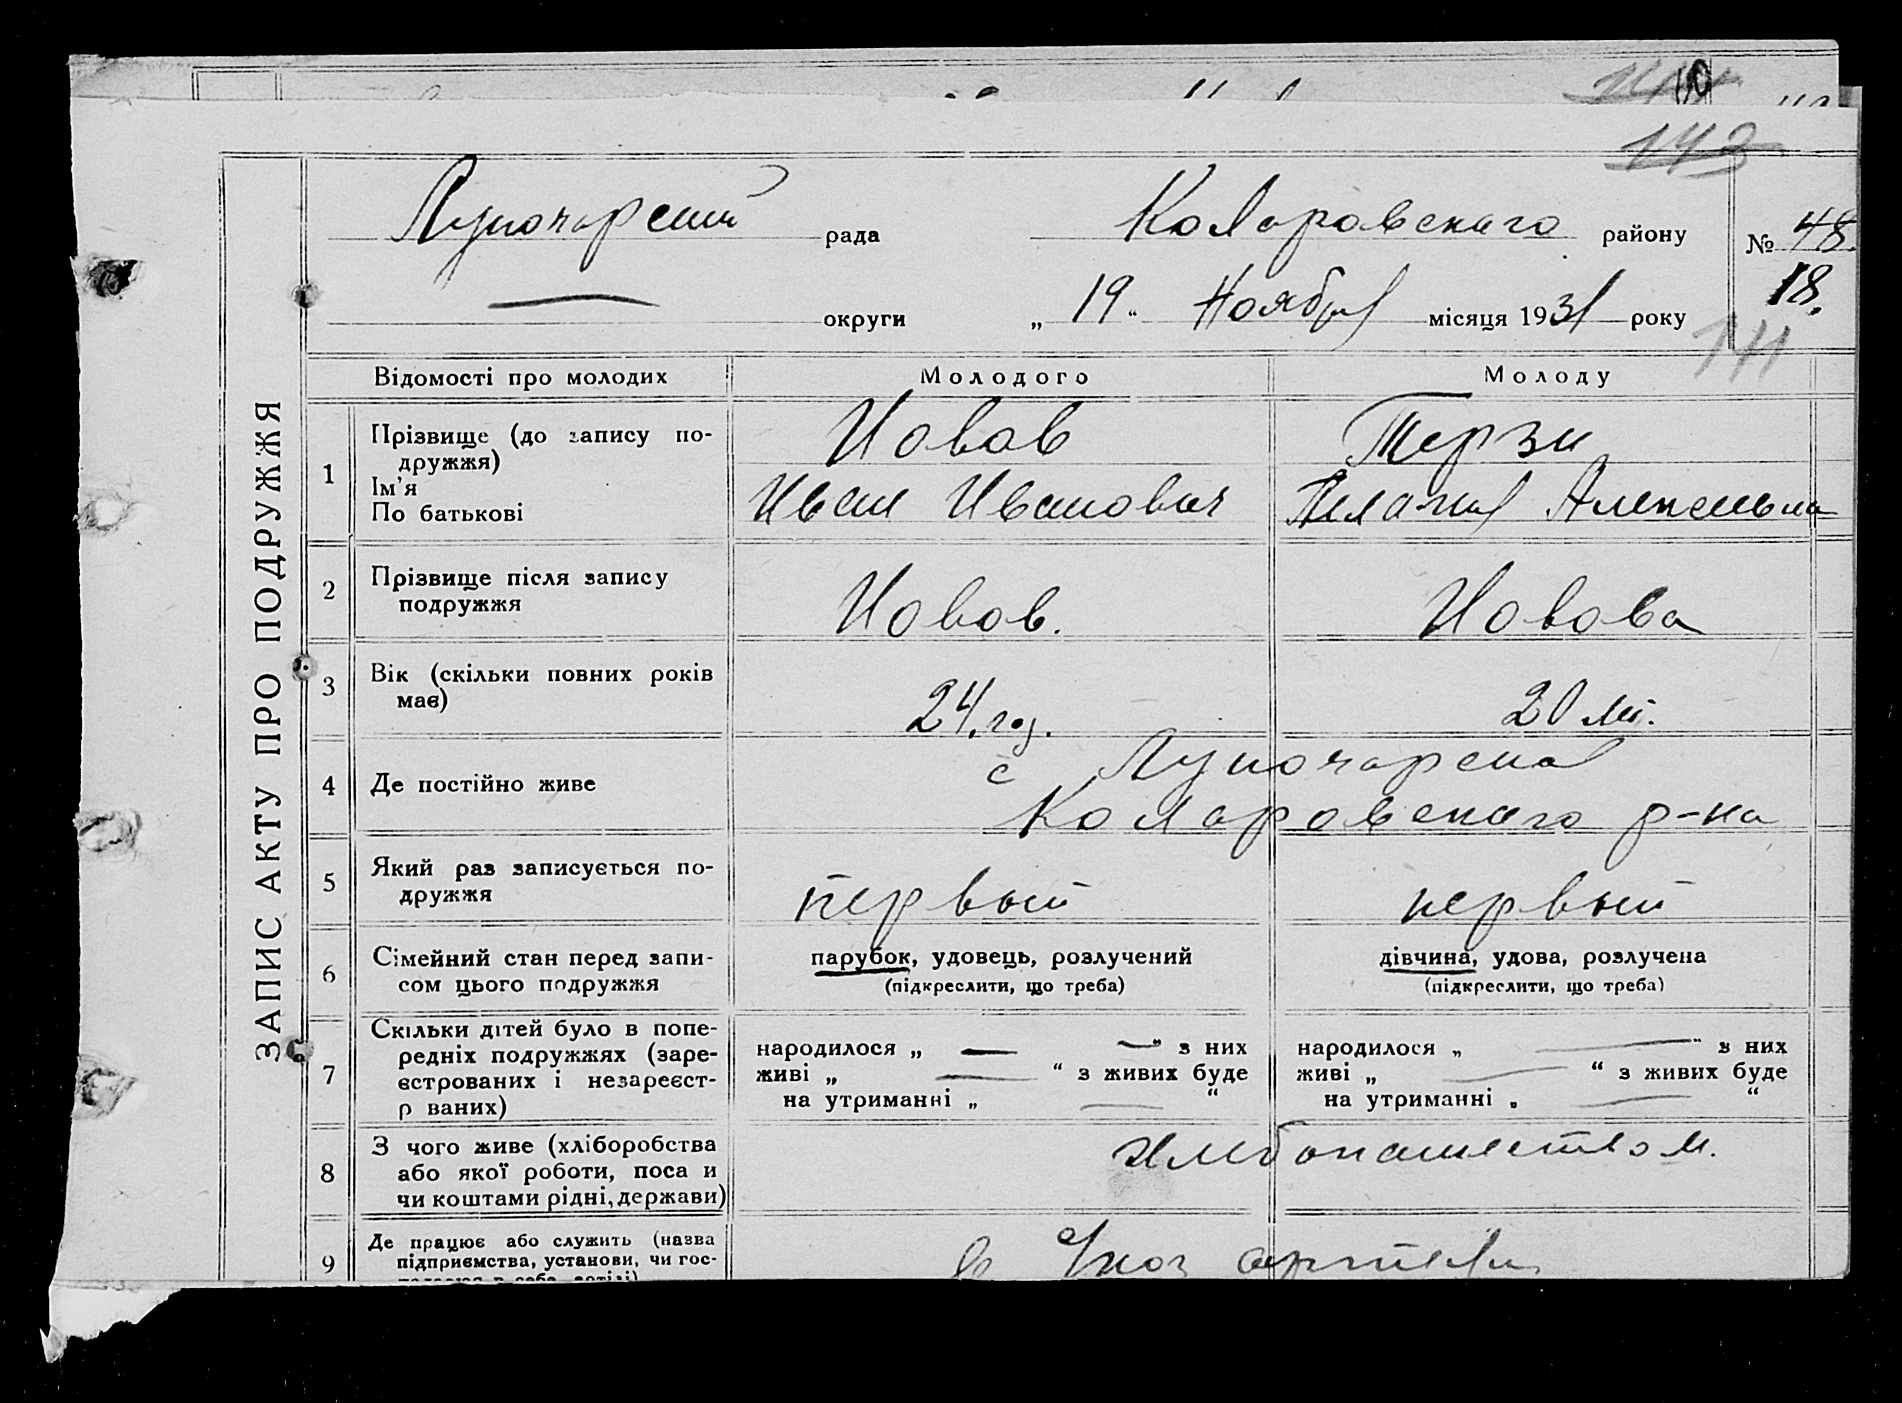 142
Луночарский рада Коларовскаго району № 48.
18.
округи „ 19 “ Ноября місяця 1931 року
141
ЗАПИС АКТУ ПРО ПОДРУЖЖЯ
Відомості про молодих Молодого Молоду
1 Прізвище (до запису по-
дружжя) Новов Терзи
Ім'я
По батькові Иван Иванович Пелагия Алексеевна
2 Прізвище після запису
подружжя Новов. Новова
3 Вік (скільки повних років
має) 24 год. 20 лет.
4 Де постійно живе с Луночарска
Коларовскаго р-на
5 Який раз записується по-
дружжя первый первый
6 Сімейний стан перед запи-
сом цього подружжя
парубок, удовець, розлучений дівчина, удова, розлучена
(підкреслити, що треба) (підкреслити, що треба)
7 Скільки дітей було в попе-
редніх подружжях (заре-
єстрованих і незареєст-
р ваних)
народилося „ — “ з них народилося „ — “ з них
живі „ — “ з живих буде живі „ — “ з живих буде
на утриманні „ — “ на утриманні „ — “
8 З чого живе (хліборобства
або якої роботи, поса и
чи коштами рідні, держави)
хлебопашеством.
9 Де працює або служить (назва
підприємства, установи, чи гос-
в артели